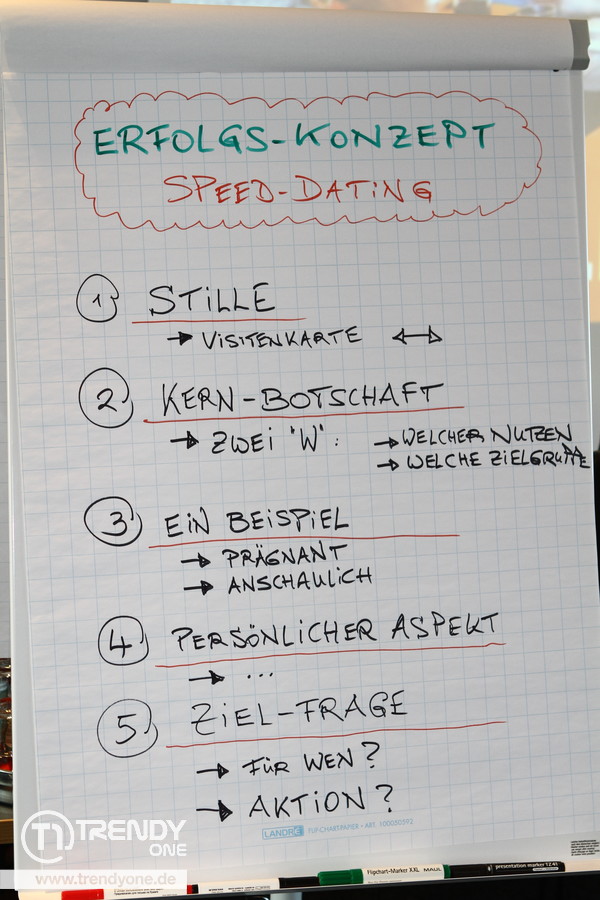 ERFOLGS-KONZEPT
SPEED-DATING
1 STILLE
→ VISITENKARTE ↔
2 KERN-BOTSCHAFT
→ ZWEI "W": → WELCHER NUTZEN
→ WELCHE ZIELGRUPPE
3 EIN BEISPIEL
→ PRÄGNANT
→ ANSCHAULICH
4 PERSÖNLICHER ASPEKT
→ ...
5 ZIEL-FRAGE
→ FÜR WEN?
→ AKTION?
LANDRÉ FLIP-CHARTPAPIER • ART. 100050592
TRENDY
ONE
www.trendyone.de
Flipchart-Marker XXL MAUL
presentation marker